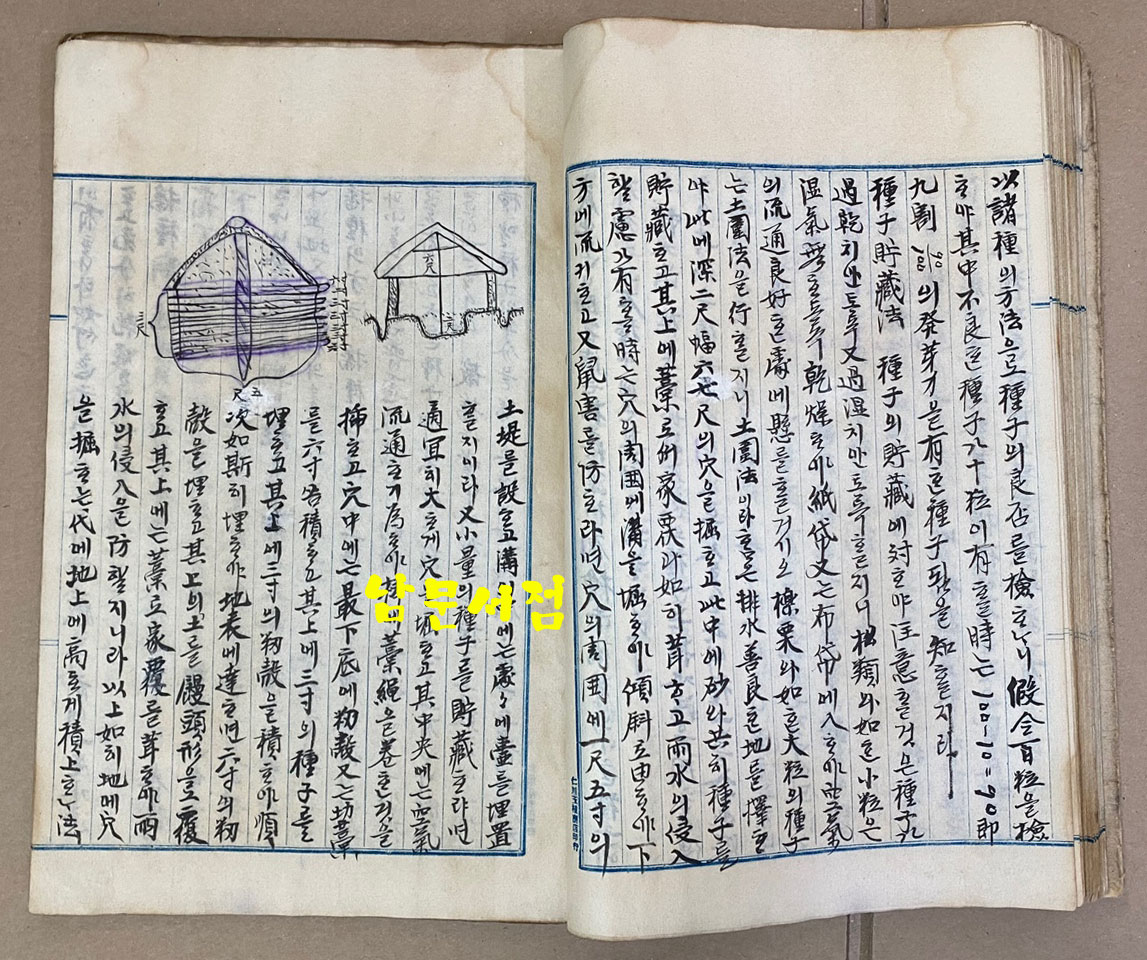 以諸種의方法으로種子의良否를檢ᄒᆞᄂᆞ니假令百粒을檢
ᄒᆞ야其中不良ᄒᆞᆫ種子가十粒이有ᄒᆞᆯ時ᄂᆞᆫ100-10=90即
九割90/100의發芽力을有ᄒᆞᆫ種子됨을知ᄒᆞᆯ지라
種子貯藏法 種子의貯藏에対ᄒᆞ야注意ᄒᆞᆯ것은種子가
過乾치안토록又過湿치안토록ᄒᆞᆯ지니松類와如ᄒᆞᆫ小粒은
湿氣無ᄒᆞ도록乾燥ᄒᆞ야紙袋又는布帒에入ᄒᆞ야空氣
의流通良好ᄒᆞᆫ處에懸ᄒᆞᆯ거시오櫟栗와如ᄒᆞᆫ大粒의種子
는土圍法을行ᄒᆞᆯ지니土圍法이라홈은排水善良ᄒᆞᆫ地를擇ᄒᆞ
야此에深二尺幅六七尺의穴을掘ᄒᆞ고此中에砂와共히種子를
貯藏ᄒᆞ고其上에藁로써家屋과如히葺ᄒᆞ고雨水의侵入
ᄒᆞᆯ慮가有ᄒᆞᆯ時는穴의周囲에溝을堀ᄒᆞ야傾斜로由ᄒᆞ야下
方에流케ᄒᆞ고又鼠害를防ᄒᆞ라면穴의周囲에一尺五寸의
六尺
二尺
二尺
五尺
土堤를設ᄒᆞ고溝內에는處々에壷를埋置
ᄒᆞᆯ지이라又小量의種子를貯藏ᄒᆞ랴면
適宜히大ᄒᆞ게穴을堀ᄒᆞ고其中央에는空氣
流通ᄒᆞ기爲ᄒᆞ야藁繩을卷ᄒᆞᆫ것을
揷ᄒᆞ고穴中에는最下底에籾殼又는切藁
를六寸可量積ᄒᆞ고其上에三寸의種子를
埋ᄒᆞ고其上에三寸의籾殼을積ᄒᆞ야順
次如斯히埋ᄒᆞ야地表에達ᄒᆞ면六寸의籾
殼을埋ᄒᆞ고其上의土를饅頭形을로覆
ᄒᆞ고其上에는藁로家覆를葺ᄒᆞ야雨
水의侵入을防할지니라以上如히地에穴
을掘ᄒᆞ는代에地上에高ᄒᆞ게積上ᄒᆞᄂᆞᆫ法
남문서점